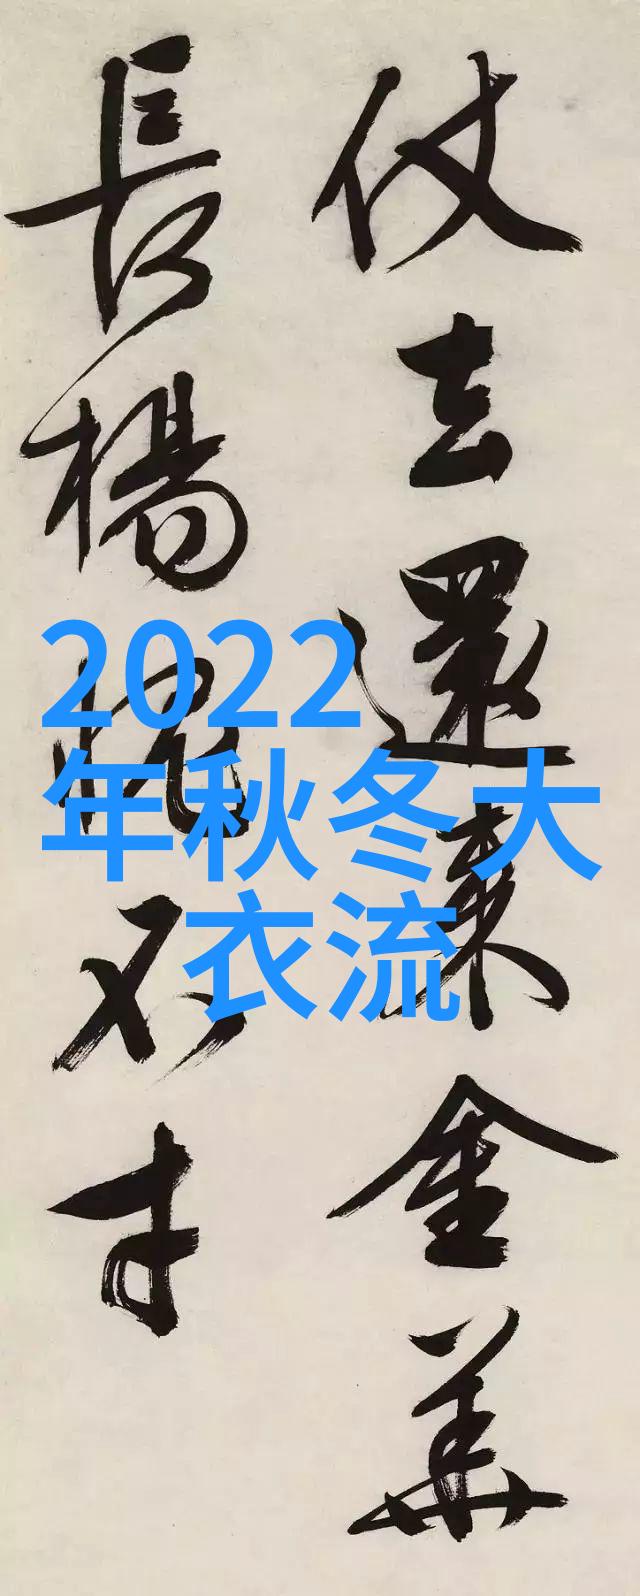 仗去還金華
長楊不才
2022
年秋冬大
衣流